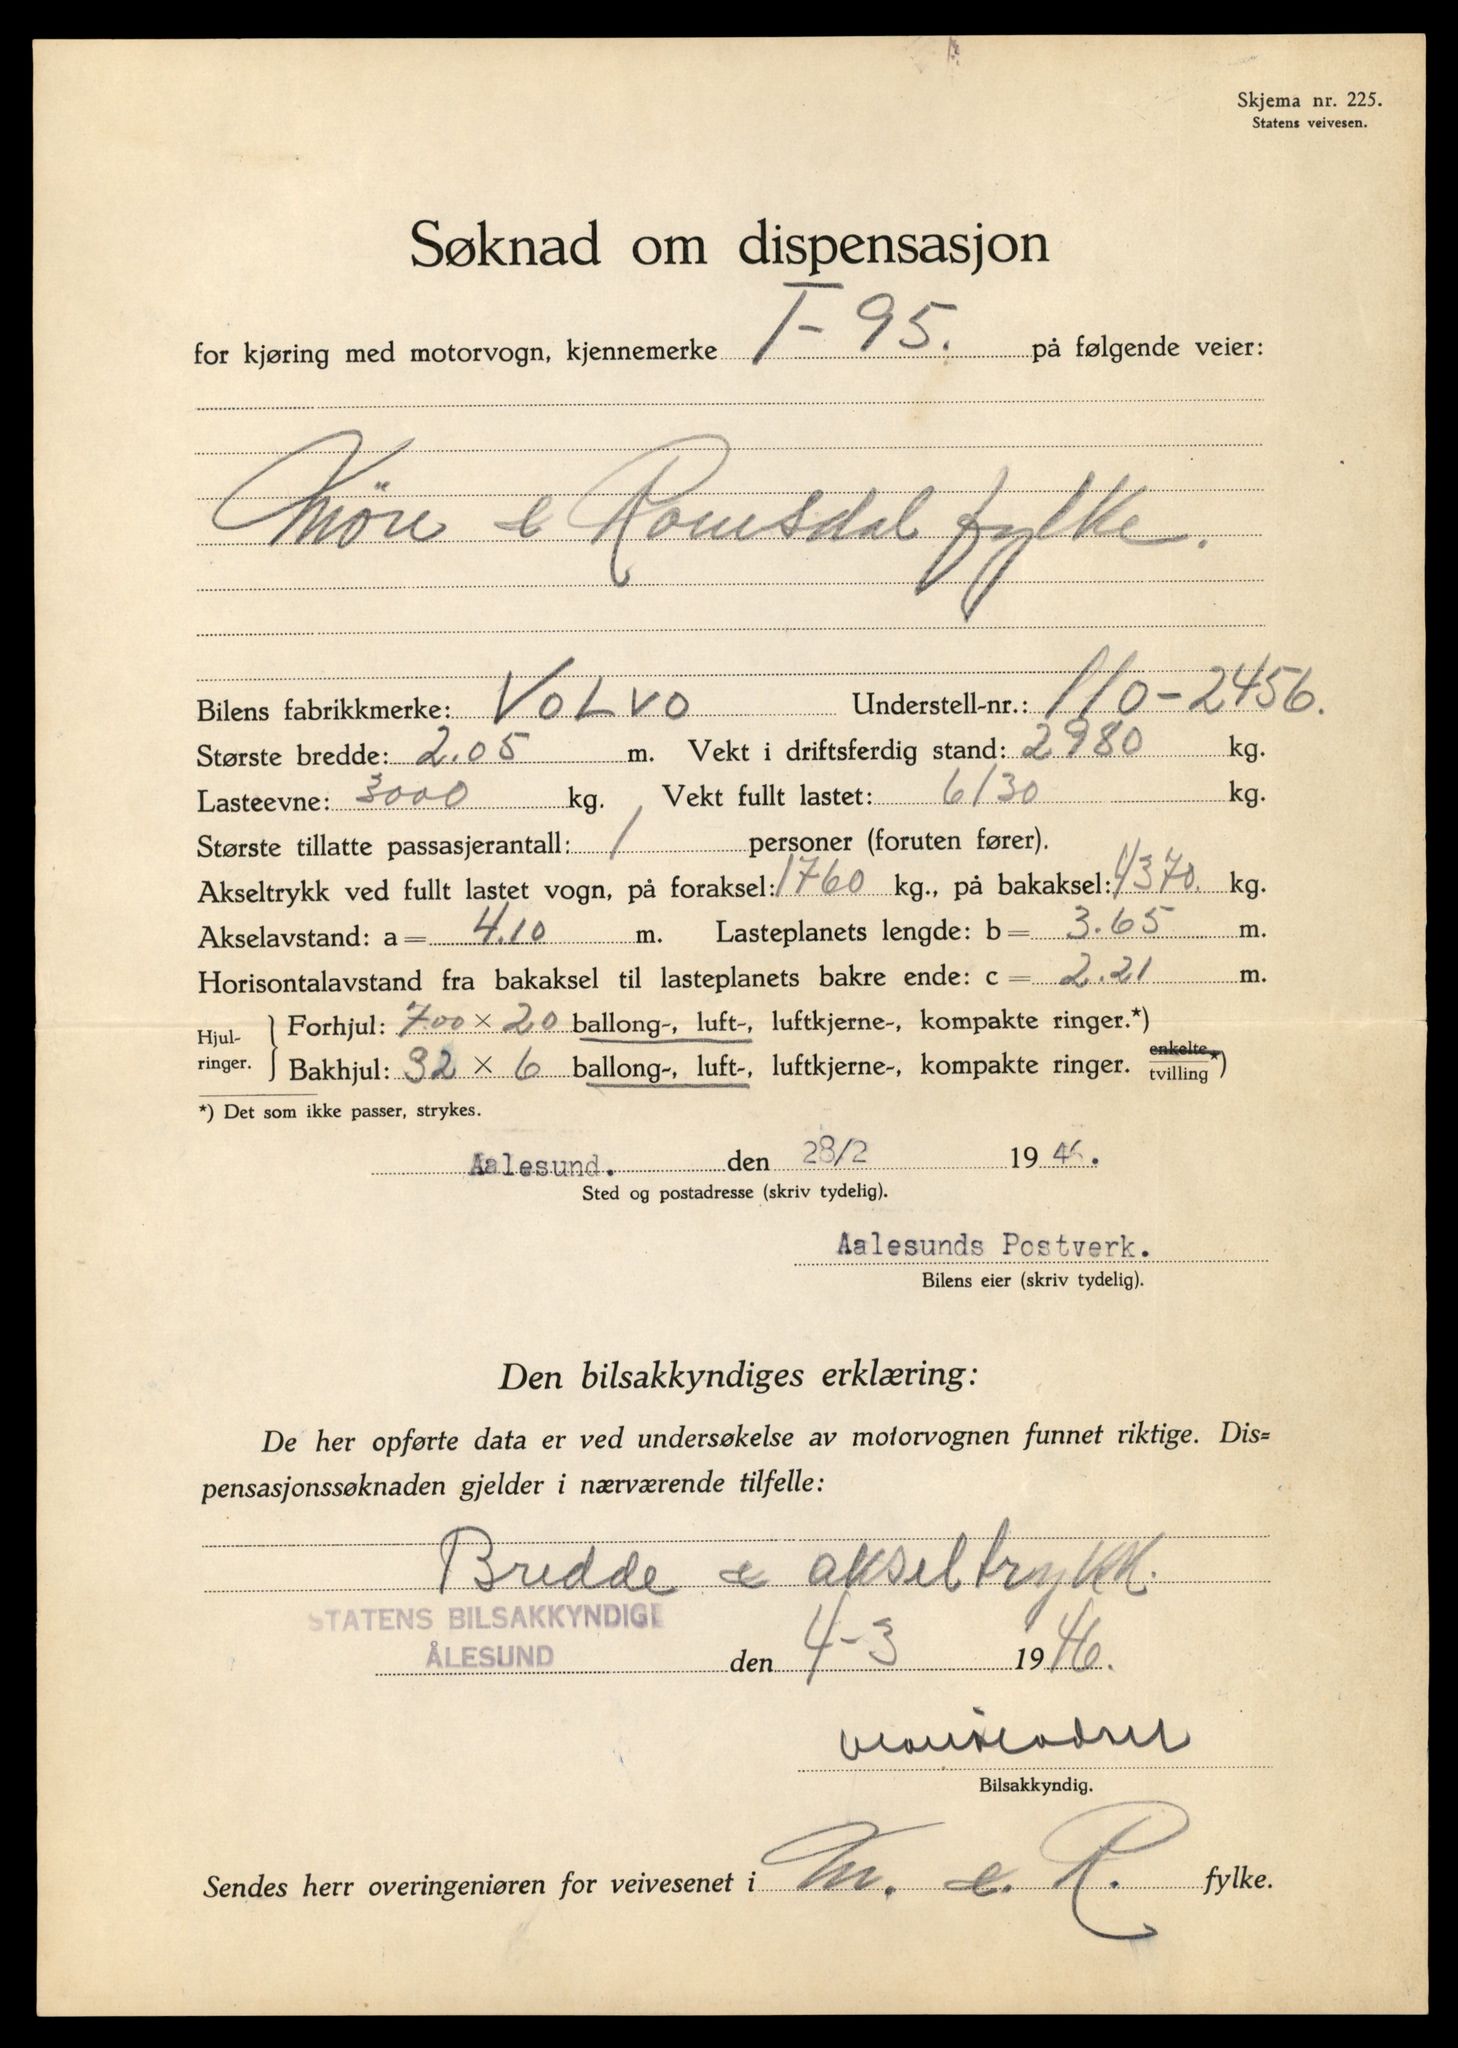 Skjema nr. 225.
Statens veivesen.
Søknad om dispensasjon
for kjøring med motorvogn, kjennemerke T-95. på følgende veier:
Møre & Romsdal fylke.
Bilens fabrikkmerke: VOLVO Understell-nr.: 110-2456.
Største bredde: 2.05 m. Vekt i driftsferdig stand: 2980 kg.
Lasteevne: 3000 kg. Vekt fullt lastet: 6130 kg.
Største tillatte passasjerantall: 1 personer (foruten fører).
Akseltrykk ved fullt lastet vogn, på foraksel: 1760 kg., på bakaksel: 4370. kg.
Akselavstand: a = 4.10 m. Lasteplanets lengde: b = 3.65 m.
Horisontalavstand fra bakaksel til lasteplanets bakre ende: c = 2.21 m.
Hjulringer. Forhjul: 700 × 20 ballong-, luft-, luftkjerne-, kompakte ringer.*)
Bakhjul: 32 × 6 ballong-, luft-, luftkjerne-, kompakte ringer. enkelte tvilling *)
*) Det som ikke passer, strykes.
Aalesund. den 28/2 1946.
Sted og postadresse (skriv tydelig).
Aalesunds Postverk.
Bilens eier (skriv tydelig).
Den bilsakkyndiges erklæring:
De her opførte data er ved undersøkelse av motorvognen funnet riktige. Dis=
pensasjonssøknaden gjelder i nærværende tilfelle:
Bredde & akseltrykk.
STATENS BILSAKKYNDIGE
ÅLESUND den 4-3 1946.
Bilsakkyndig.
Sendes herr overingeniøren for veivesenet i M. & R. fylke.